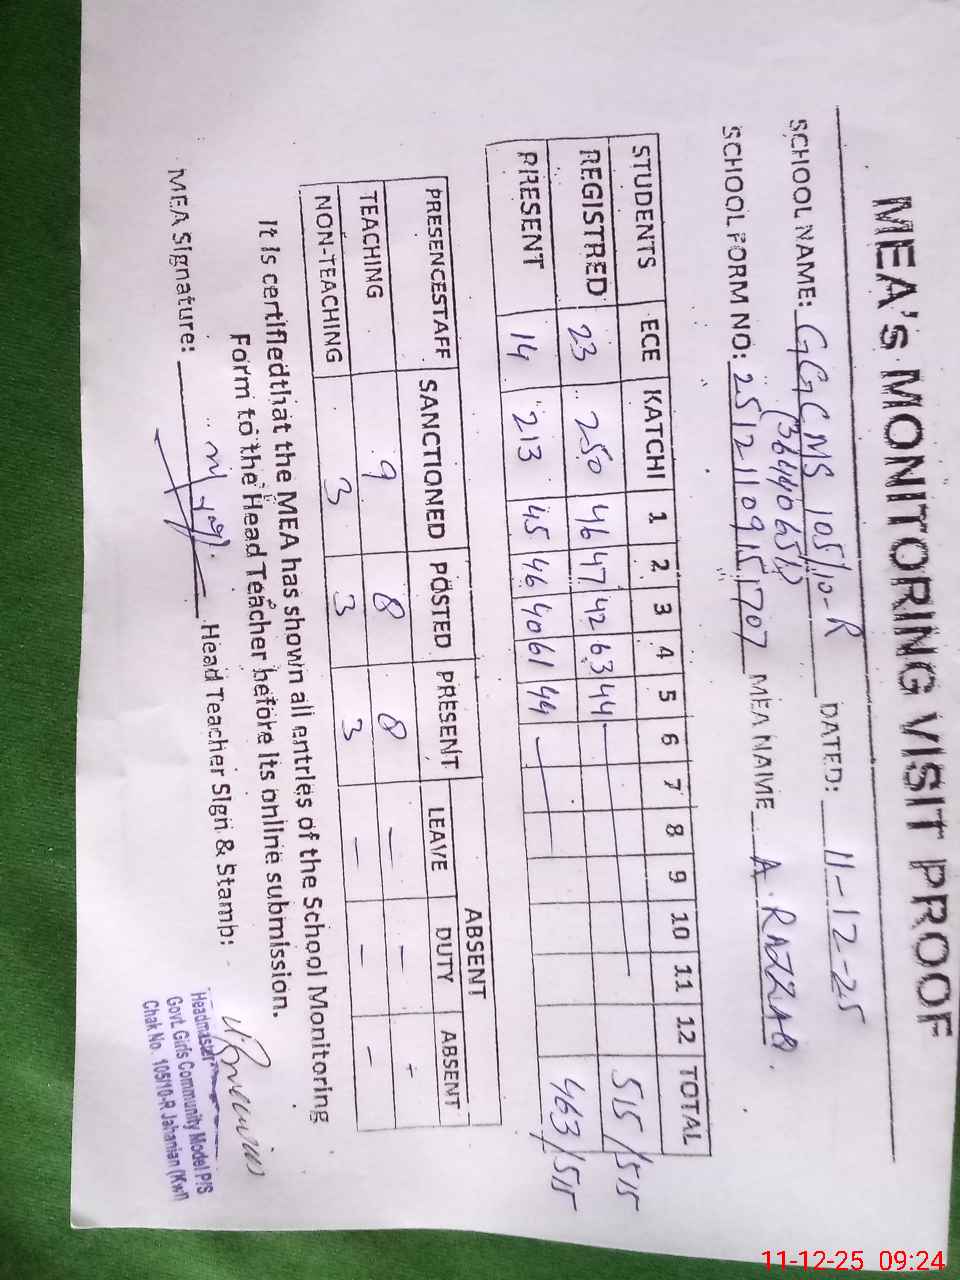 MEA's MONITORING VISIT PROOF
SCHOOL NAME: GGCMS 105/10-R DATED: 11-12-25
(36440651)
SCHOOL FORM NO: 25121109151707 MEA NAME A. RAZZAQ.
STUDENTS ECE KATCHI 1 2 3 4 5 6 7 8 9 10 11 12 TOTAL
REGISTRED 23 250 46 47 42 63 44 — 515/515
PRESENT 14 213 45 46 40 61 44 — 463/515
ABSENT
PRESENCESTAFF SANCTIONED POSTED PRESENT LEAVE DUTY ABSENT
TEACHING 9 8 8 — — —
NON-TEACHING 3 3 3 — — —
It is certifiedthat the MEA has shown all entries of the School Monitoring
Form to the Head Teacher before its online submission.
MEA Signature: Head Teacher Sign & Stamb:
Headmaster
Govt. Girls Community Model P/S
Chak No. 105/10-R Jahanian (Kwl)
11-12-25 09:24